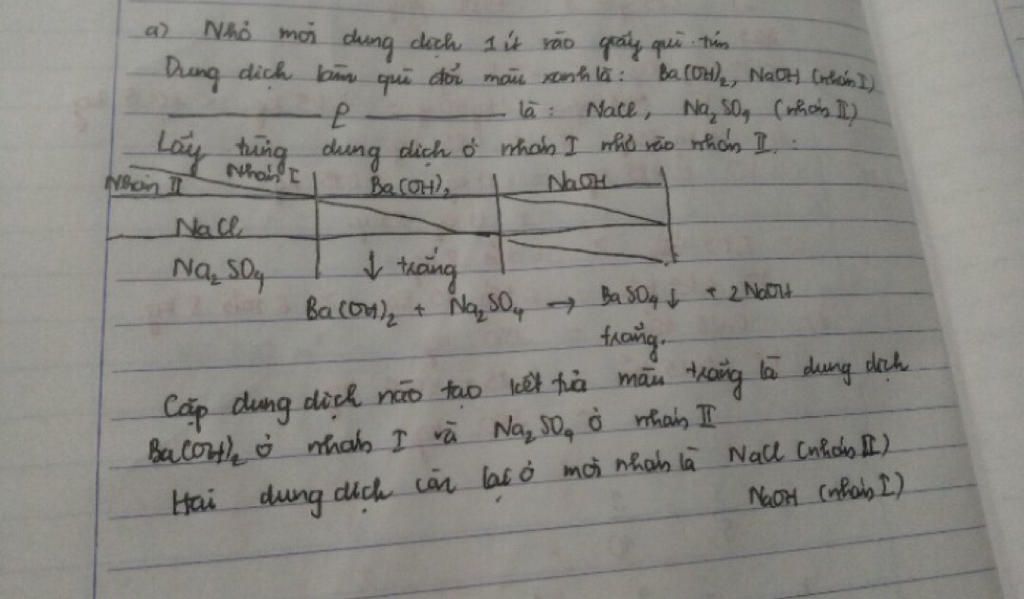 a) Nhỏ mỗi dung dịch 1 ít vào giấy quì tím
Dung dịch làm quì đổi màu xanh là: Ba(OH)₂, NaOH (nhóm I)
là: NaCl, Na₂SO₄ (nhóm II)
Lấy từng dung dịch ở nhóm I nhỏ vào nhóm II.:
Nhóm II Nhóm I Ba(OH)₂ NaOH
NaCl
Na₂SO₄ ↓ trắng
Ba(OH)₂ + Na₂SO₄ → BaSO₄↓ + 2NaOH
trắng.
Cặp dung dịch nào tạo kết tủa màu trắng là dung dịch
Ba(OH)₂ ở nhóm I và Na₂SO₄ ở nhóm II
Hai dung dịch còn lại ở mỗi nhóm là NaCl (nhóm II)
NaOH (nhóm I)